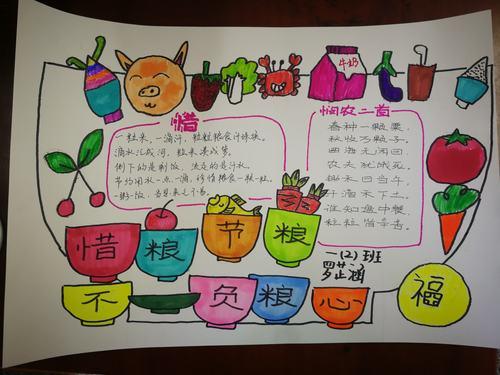 牛奶
惜
一粒米，一滴汗，粒粒粮食汗珠换。
滴水汇成河，粒米凑成箩。
倒下的是剩饭，流走的是汗水。
节约用水一点一滴，珍惜粮食
一粥一饭，当思来之不易。
悯农二首
春种一颗粟，
秋收万颗子。
四海无闲田，
农夫犹饿死。
锄禾日当午，
汗滴禾下土。
谁知盘中餐，
粒粒皆辛苦。
惜 粮 节 粮
一(2)班
罗芷涵
不 负 粮 心
福